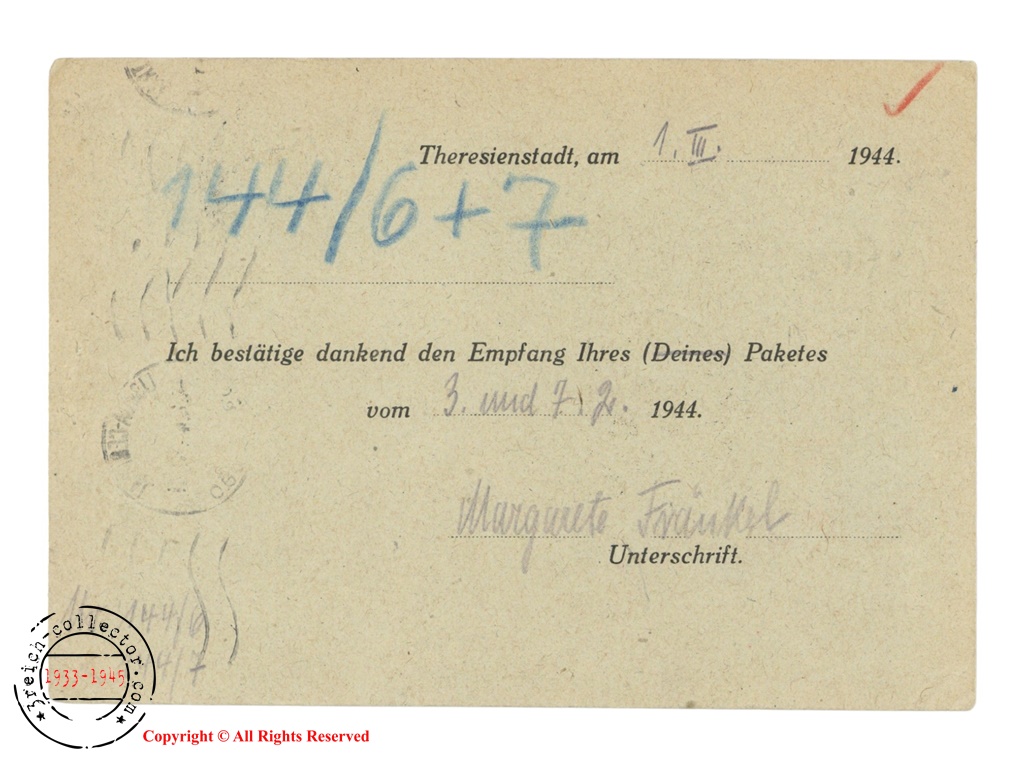 Theresienstadt, am 1. III. 1944.
144/6+7
Ich bestätige dankend den Empfang Ihres (Deines) Paketes
vom 3. und 7. 2. 1944.
Margarete Fränkel
Unterschrift.
144/6
4/7
3reich-collector.com
1933-1945
Copyright © All Rights Reserved